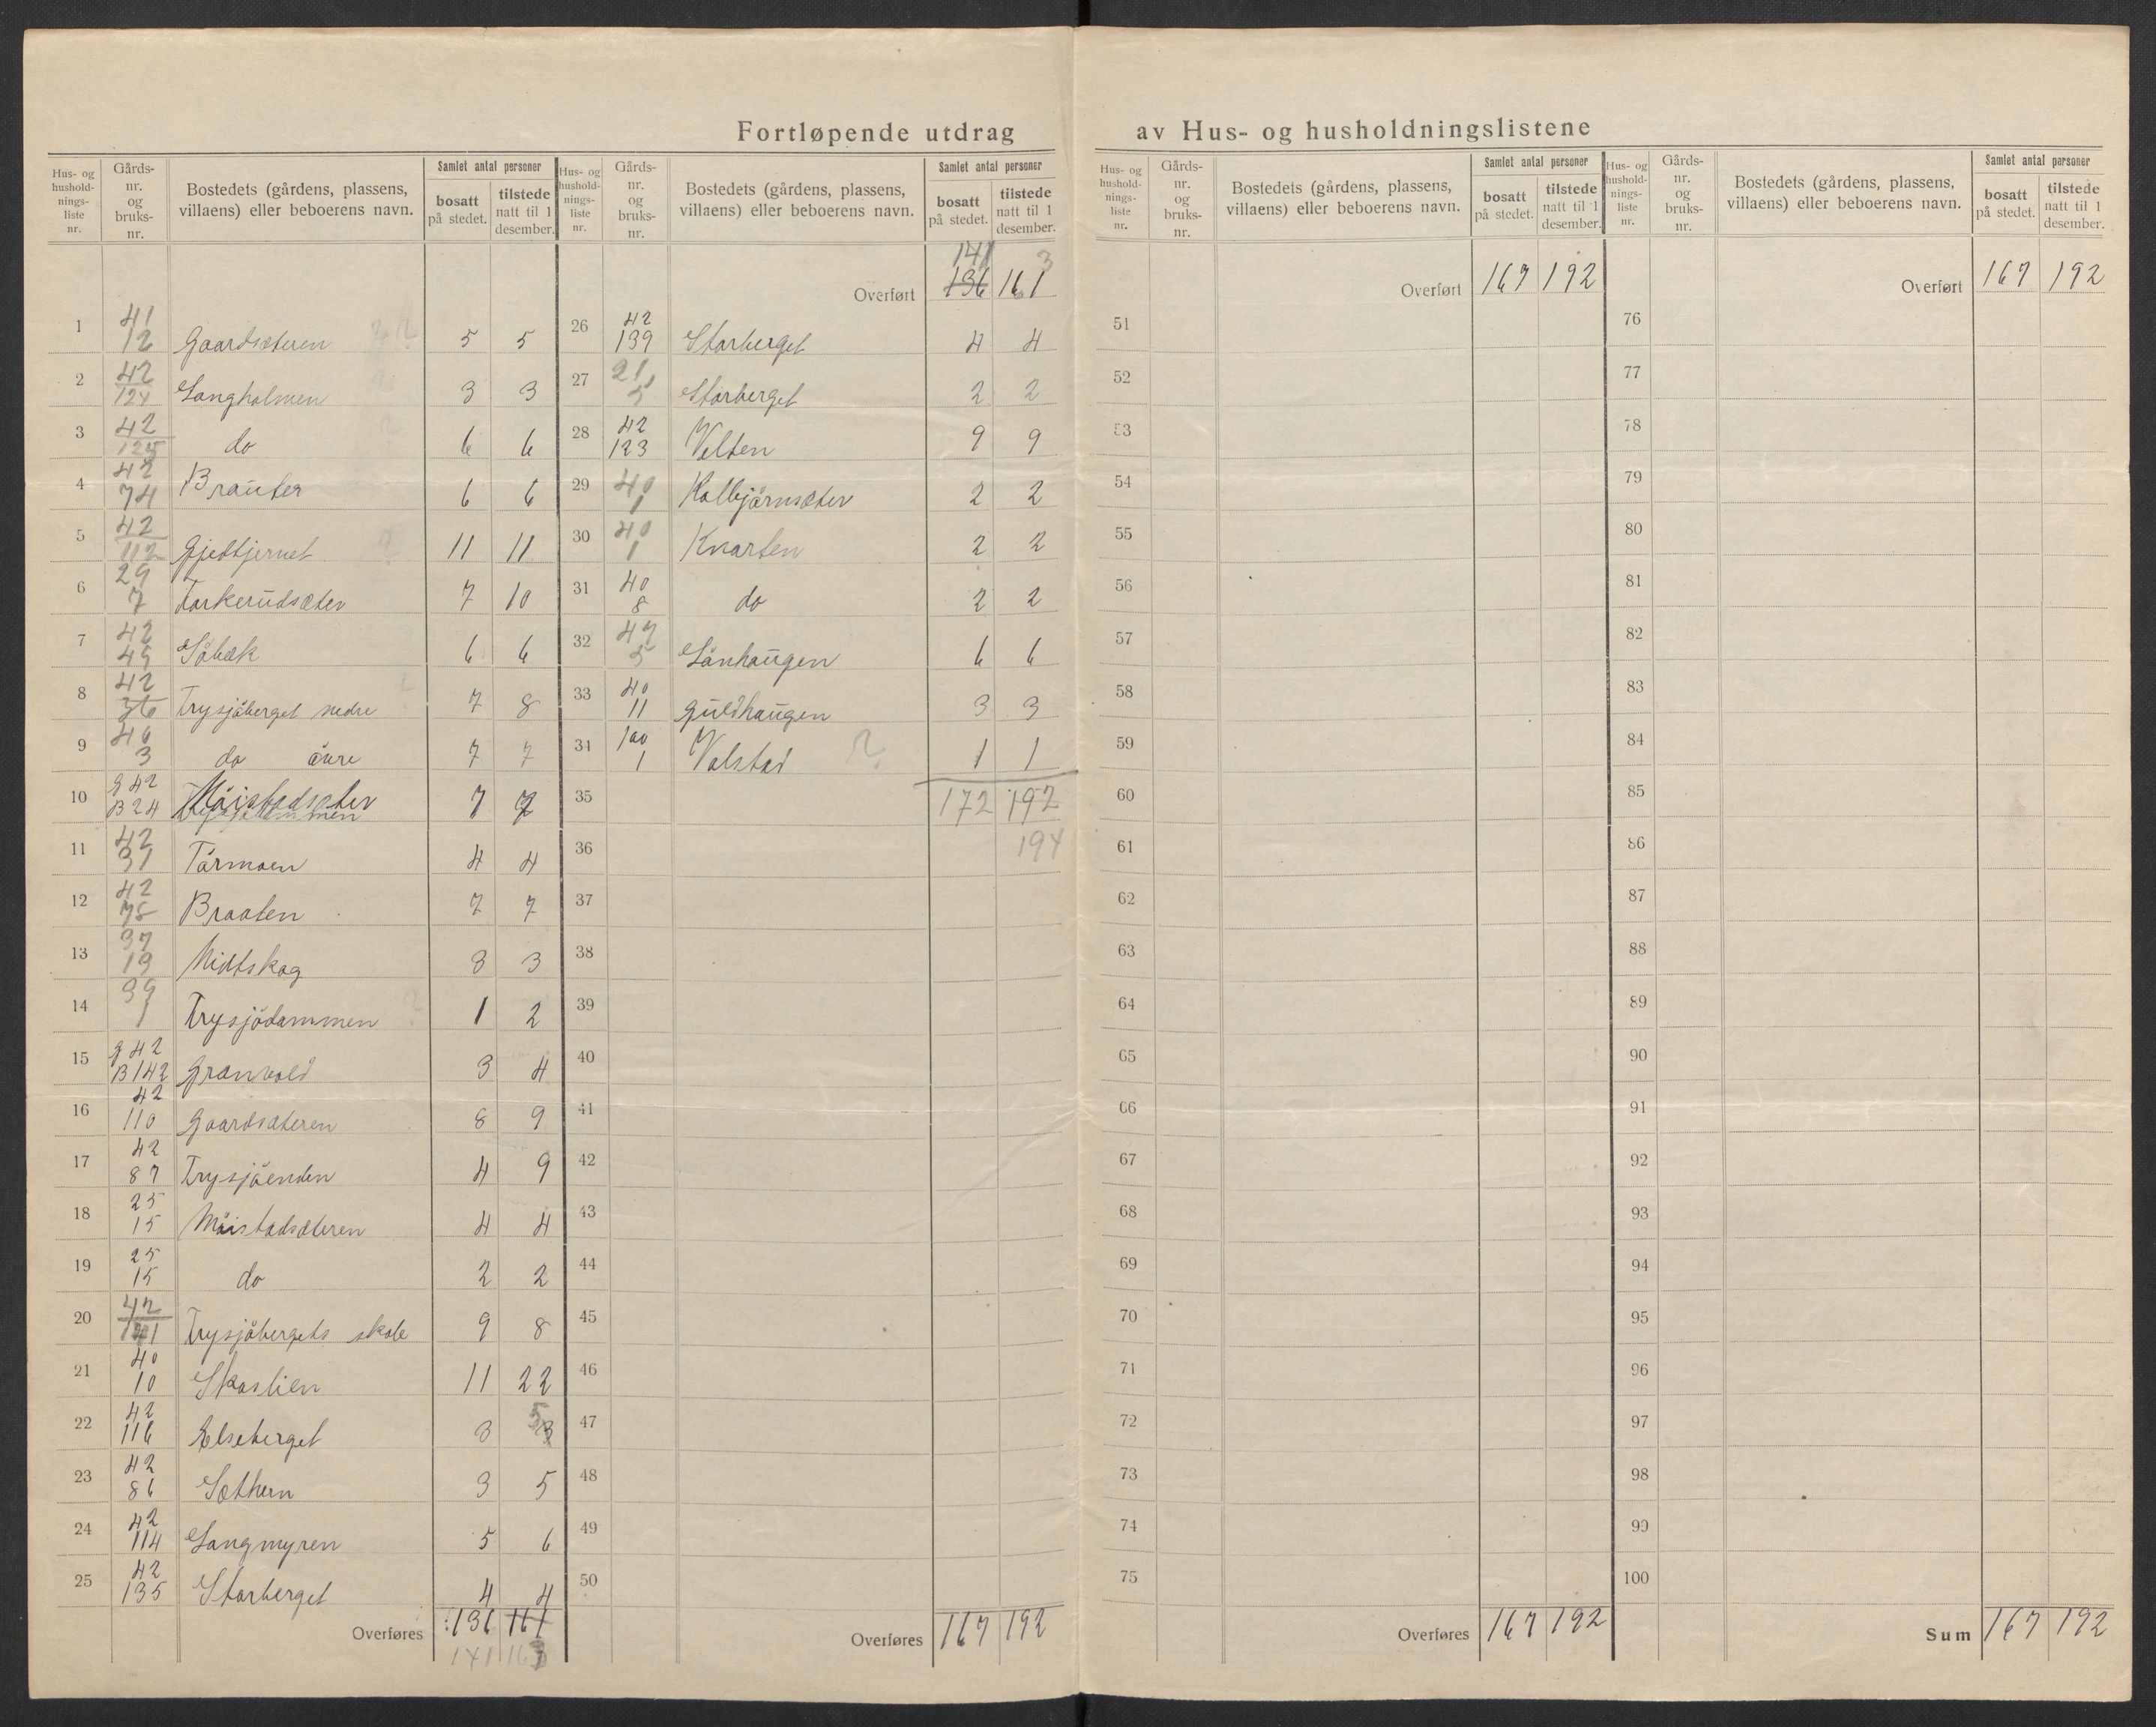 Fortløpende utdrag av Hus- og husholdningslistene
Hus- og hushold-nings-liste nr. | Gårds-nr. og bruks-nr. | Bostedets (gårdens, plassens, villaens) eller beboerens navn. | Samlet antal personer bosatt på stedet. | tilstede natt til 1 desember.
1 | 41 12 | Gaardsæteren | 5 | 5
2 | 42 124 | Langholmen | 3 | 3
3 | 42 125 | do | 6 | 6
4 | 42 74 | Brauter | 6 | 6
5 | 42 112 | Gjedtjernet | 11 | 11
6 | 29 7 | Torkerudsæter | 7 | 10
7 | 42 45 | Söbæk | 6 | 6
8 | 42 36 | Trysjöberget nedre | 7 | 8
9 | 46 3 | do övre | 7 | 7
10 | G 42 B 24 | Möistadsæter | 7 | 7
11 | 42 31 | Törmoen | 4 | 4
12 | 42 78 | Braaten | 7 | 7
13 | 37 19 | Midtskog | 3 | 3
14 | 39 1 | Trysjödammen | 1 | 2
15 | G 42 B 142 | Granvold | 3 | 4
16 | 42 110 | Gaardsæteren | 8 | 9
17 | 42 87 | Trysjöenden | 4 | 9
18 | 25 15 | Möistadsæteren | 4 | 4
19 | 25 15 | do | 2 | 2
20 | 42 141 | Trysjöbergets skole | 9 | 8
21 | 40 10 | Skaslien | 11 | 22
22 | 42 116 | Elseberget | 3 | 5 3
23 | 42 86 | Sæthern | 3 | 5
24 | 42 114 | Langmyren | 5 | 6
25 | 42 135 | Storberget | 4 | 4
Overføres | 136 | 161
141 | 163
Hus- og hushold-nings-liste nr. | Gårds-nr. og bruks-nr. | Bostedets (gårdens, plassens, villaens) eller beboerens navn. | Samlet antal personer bosatt på stedet. | tilstede natt til 1 desember.
141 | 3
Overført | 136 | 161
26 | 42 139 | Storberget | 4 | 4
27 | 21 5 | Storberget | 2 | 2
28 | 42 123 | Velten | 9 | 9
29 | 40 1 | Kolbjörnsæter | 2 | 2
30 | 40 1 | Kvarten | 2 | 2
31 | 40 8 | do | 2 | 2
32 | 47 5 | Lönhaugen | 6 | 6
33 | 40 11 | Guldhaugen | 3 | 3
34 | 100 1 | Valstad ? | 1 | 1
35 | 172 | 192
36 | 194
37
38
39
40
41
42
43
44
45
46
47
48
49
50
Overføres | 167 | 192
Hus- og hushold-nings-liste nr. | Gårds-nr. og bruks-nr. | Bostedets (gårdens, plassens, villaens) eller beboerens navn. | Samlet antal personer bosatt på stedet. | tilstede natt til 1 desember.
Overført | 167 | 192
51
52
53
54
55
56
57
58
59
60
61
62
63
64
65
66
67
68
69
70
71
72
73
74
75
Overføres | 167 | 192
Hus- og hushold-nings-liste nr. | Gårds-nr. og bruks-nr. | Bostedets (gårdens, plassens, villaens) eller beboerens navn. | Samlet antal personer bosatt på stedet. | tilstede natt til 1 desember.
Overført | 167 | 192
76
77
78
79
80
81
82
83
84
85
86
87
88
89
90
91
92
93
94
95
96
97
98
99
100
Sum | 167 | 192